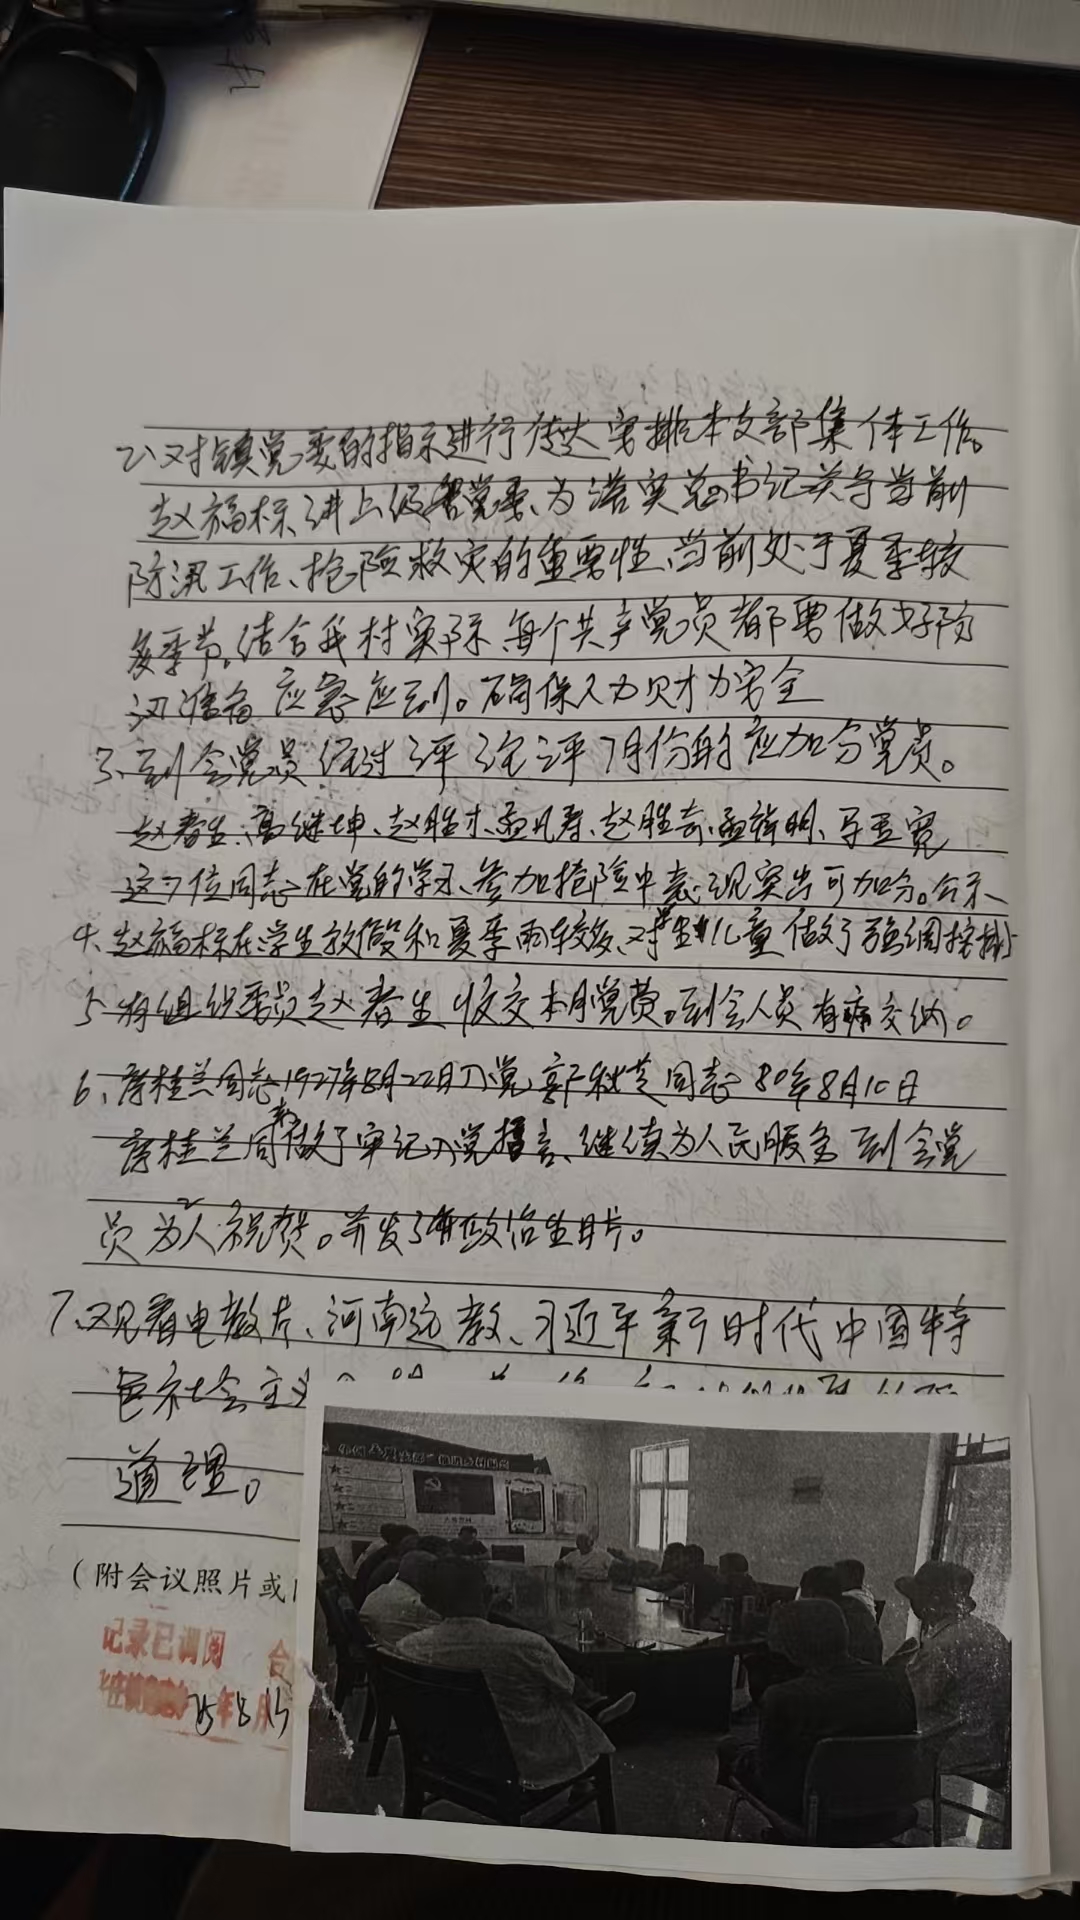 2、对镇党委的指示进行传达安排本支部集体工作。
赵福标讲上级党委、为落实总书记关于当前
防汛工作、抢险救灾的重要性、当前处于夏季较
多季节。结合我村实际、每个共产党员都要做好防
汛准备 应急应到。确保人力财力安全
3、到会党员经过评 评7月份的应加分党员。
赵春生、高继坤、赵胜才、孟凡春、赵胜奇、孟祥明、
这7位同志在党的学习、参加抢险中表现突出可加分。公示
4、赵福标在学生放假和夏季雨较多、对学生儿童做了强调
5、有组织委员赵春生收交本月党费。到会人员有 交纳。
6、桂兰同志19 7年8月22日入党, 郭秋芝同志80年8月10日
桂兰同志做了牢记入党誓言、继续为人民服务 到会党
员为二人祝贺。并发了政治生日片。
7、观看电教片、河南远教、习近平新时代中国特
色社会主义
道理。
(附会议照片或
记录已调阅 合
25年8月15